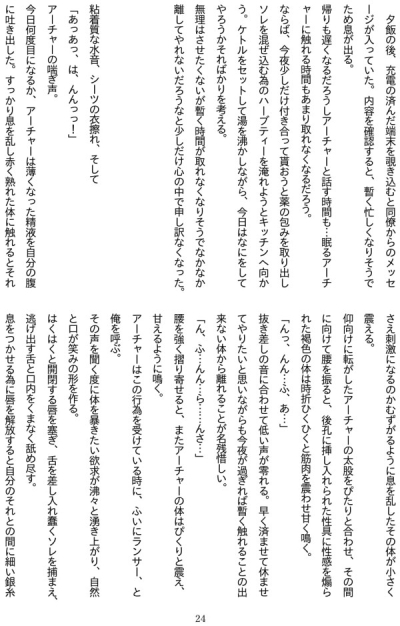 夕飯の後、充電の済んだ端末を覗き込むと同僚からのメッセ
ージが入っていた。内容を確認すると、暫く忙しくなりそうで
ため息が出る。
帰りも遅くなるだろうしアーチャーと話す時間も…眠るアーチ
ャーに触れる時間もあまり取れなくなるだろう。
ならば、今夜少しだけ付き合って貰おうと薬の包みを取り出し
ソレを混ぜ込む為のハーブティーを淹れようとキッチンへ向か
う。ケトルをセットして湯を沸かしながら、今日はなにをして
やろうかそればかりを考える。
無理はさせたくないが暫く時間が取れなくなりそうでなかなか
離してやれないだろうなと少しだけ心の中で申し訳なくなった。
粘着質な水音、シーツの衣擦れ、そして
「あっあっ、は、んんっっ！」
アーチャーの喘ぎ声。
今日何度目になるか、アーチャーは薄くなった精液を自分の腹
に吐き出した。すっかり息を乱し赤く熟れた体に触れるとそれ
さえ刺激になるのかむずがるように息を乱したその体が小さく
震える。
仰向けに転がしたアーチャーの太股をぴたりと合わせ、その間
に向けて腰を振ると、後孔に挿し入れられた性具に性感を煽ら
れた褐色の体は時折ひくひくと筋肉を震わせ甘く鳴く。
「んっ、んん…ふ、あ…」
抜き差しの音に合わせて低い声が零れる。早く済ませて休ませ
てやりたいと思いながらも今夜が過ぎれば暫く触れることの出
来ない体から離れることが名残惜しい。
「ん、ふ…んん…ら……んさ…」
腰を強く摺り寄せると、またアーチャーの体はぴくりと震え、
甘えるように鳴く。
アーチャーはこの行為を受けている時に、ふいにランサー、と
俺を呼ぶ。
その声を聞く度に体を暴きたい欲求が沸々と湧き上がり、自然
と口が笑みの形を作る。
はくはくと開閉する唇を塞ぎ、舌を差し入れ蠢くソレを捕まえ、
逃げ出す舌と口内をくまなく舐め尽す。
息をつかせる為に唇を解放すると自分のそれとの間に細い銀糸
24